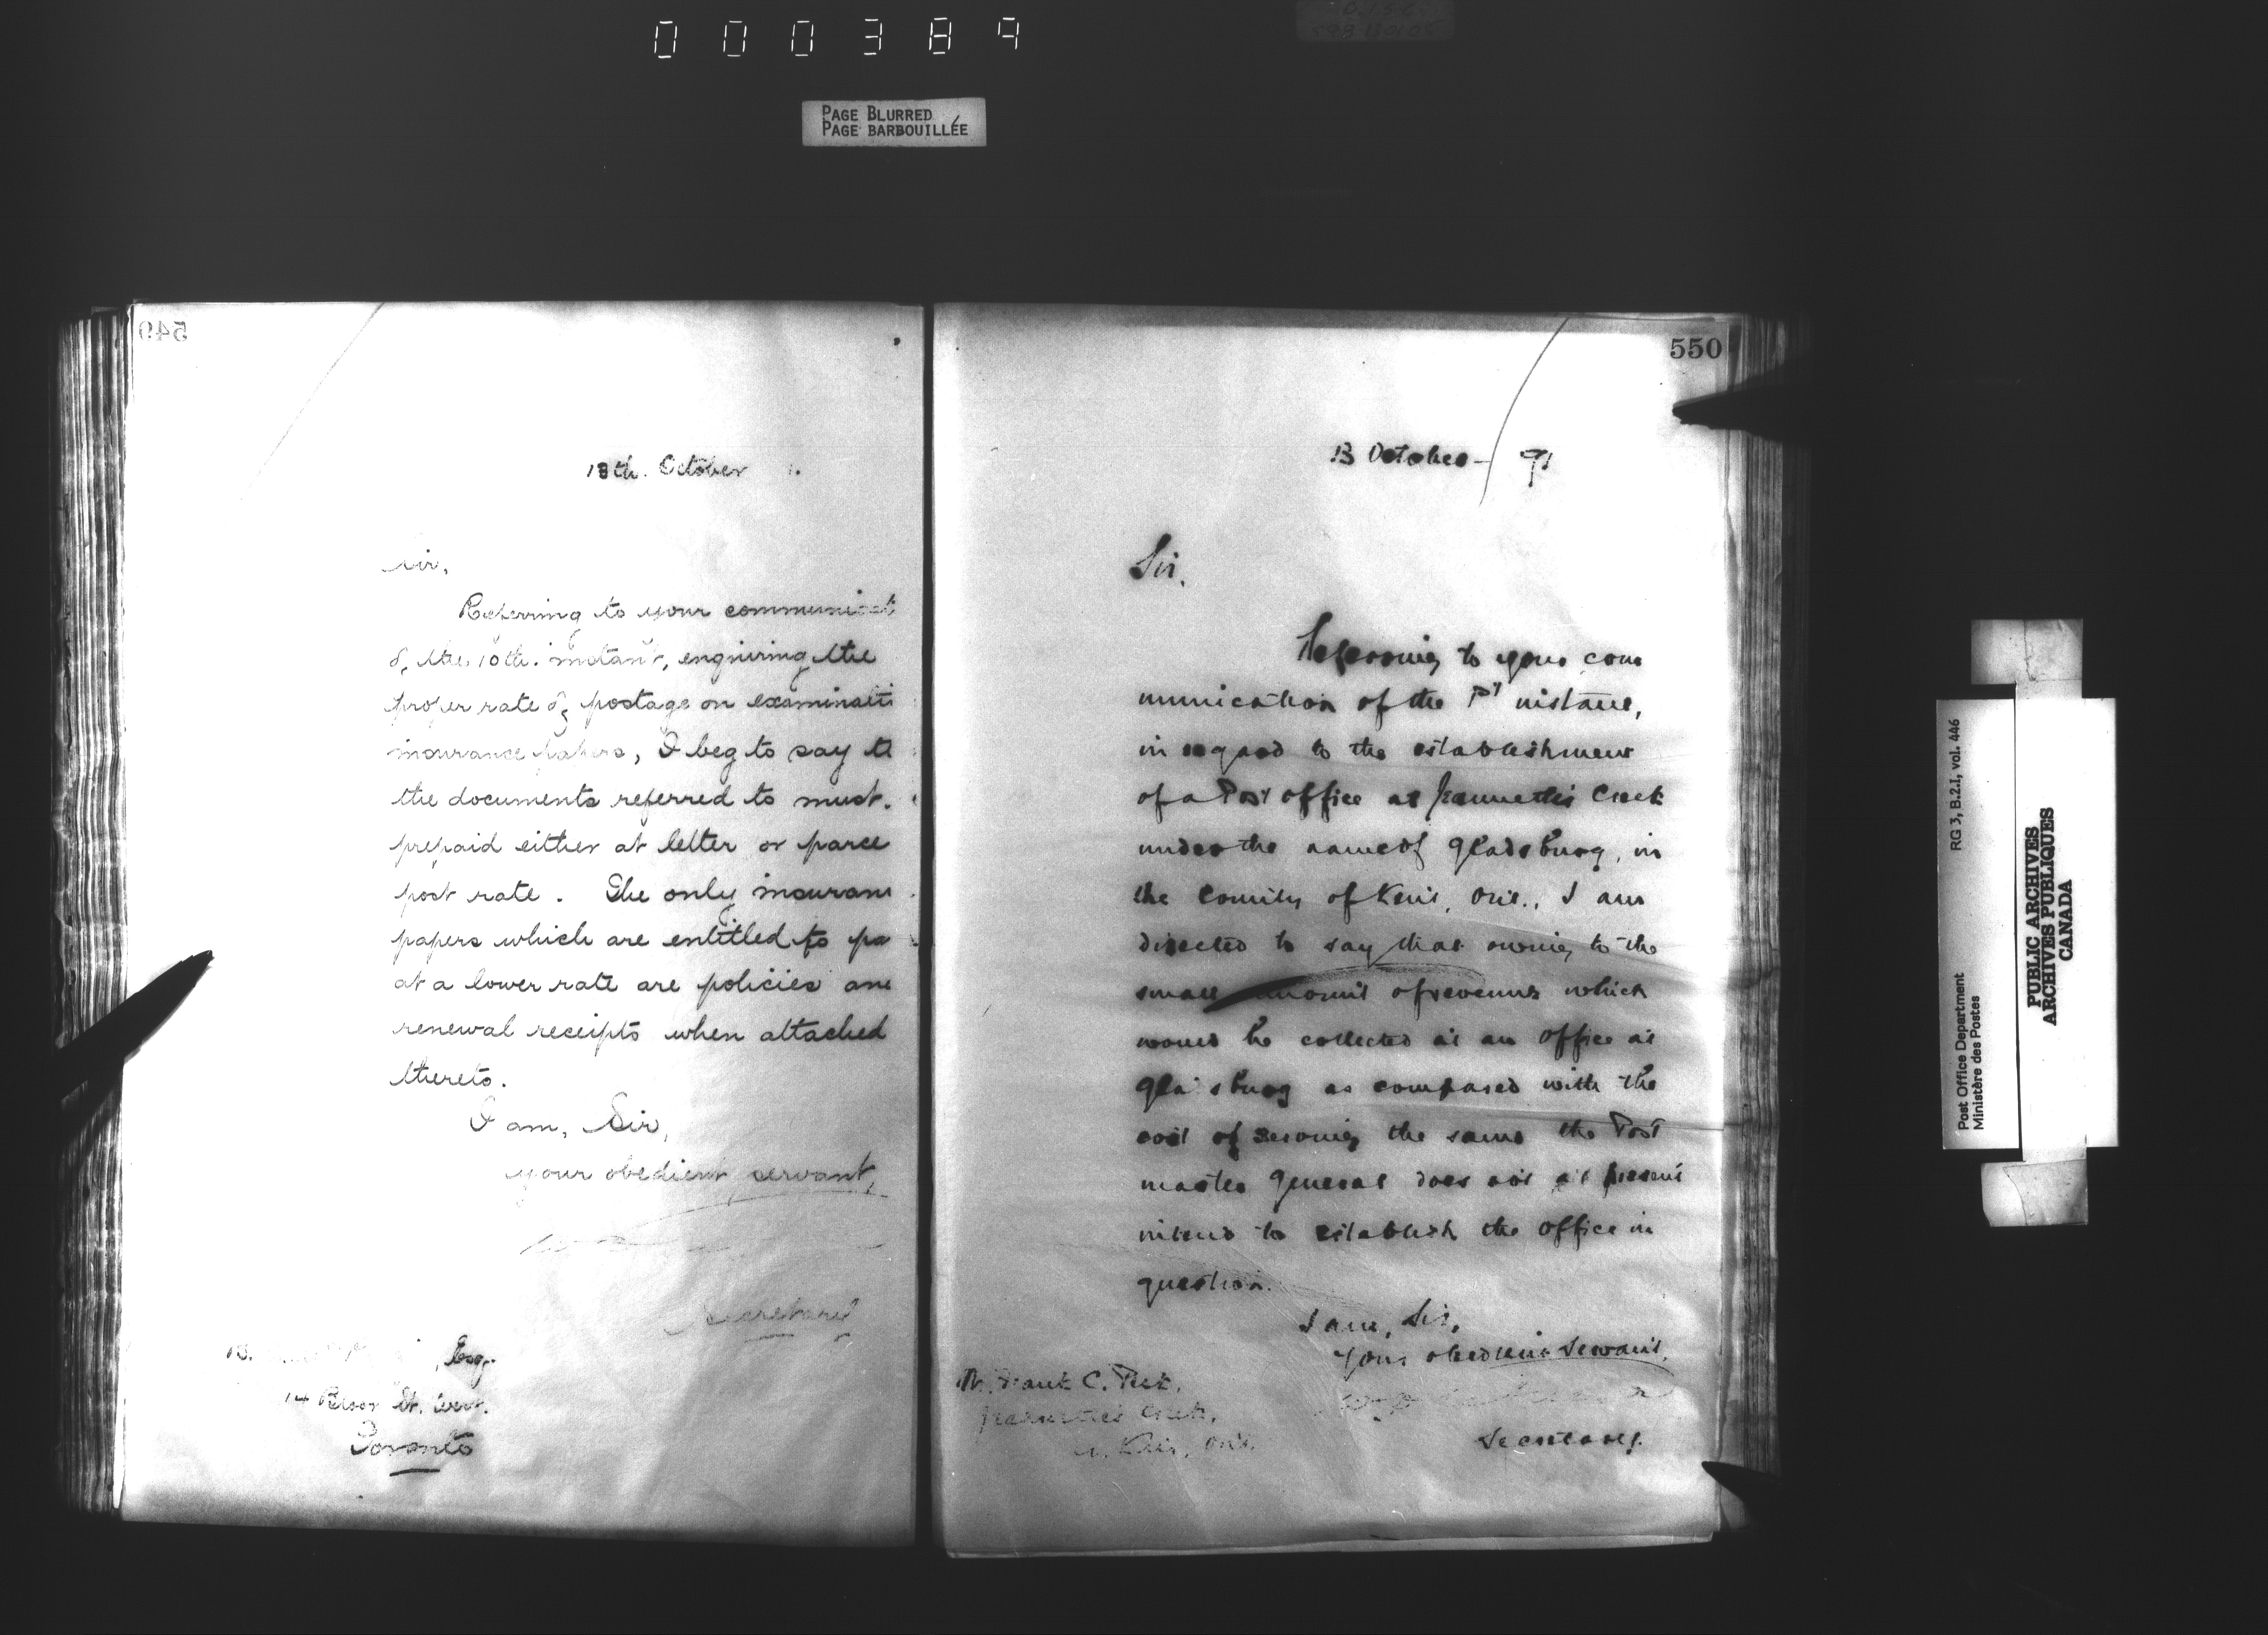 000389
PAGE BLURRED
PAGE BARBOUILLÉE
549
13th. October 1.
Sir,
Referring to your communicat
of the 10th. instant, enquiring the
proper rate of postage on examinati
insurance papers, I beg to say th
the documents referred to must.
prepaid either at letter or parce
post rate. The only insuran
papers which are entitled to pa
at a lower rate are policies an
renewal receipts when attached
thereto.
I am, Sir,
your obedient servant,
Secretary
Esq.
14 Bloor St. West.
Toronto
550
13 October - 91
Sir,
Referring to your com
munication of the 1st instant,
in regard to the establishment
of a Post office at Jeannette's Creek
under the name of Gladsburg, in
the County of Kent, Ont., I am
directed to say that owing to the
small amount of revenue which
would be collected at an office at
Gla sburg as compared with the
cost of serving the same the Post
master General does not at present
intend to establish the office in
question.
I am, Sir,
Your obedient Servant,
Secretary.
Mr. Frank C. Peck,
Jeannette's Creek,
Co. Kent, Ont.
RG 3, B.2.1, vol. 446
Post Office Department
Ministère des Postes
PUBLIC ARCHIVES
ARCHIVES PUBLIQUES
CANADA